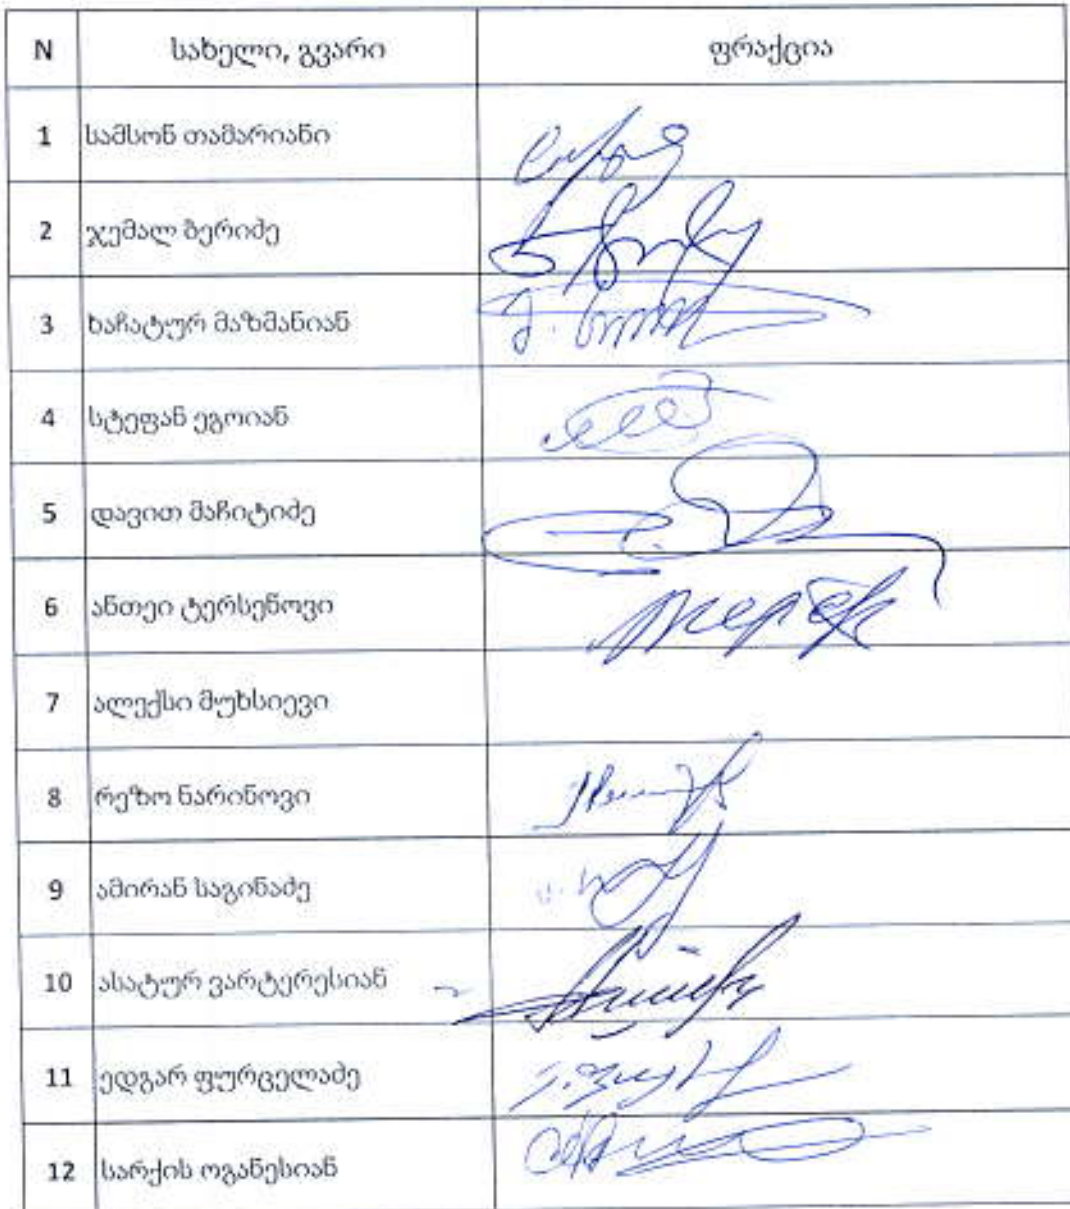 N სახელი, გვარი ფრაქცია
1 სამსონ თამარიანი
2 ჯემალ ბერიძე
3 ხაჩატურ მაზმანიან
4 სტეფან ეგოიან
5 დავით მაჩიტიძე
6 ანთეი ტერსენოვი
7 ალექსი მუხსიევი
8 რეზო ნარინოვი
9 ამირან საგინაძე
10 ასატურ ვარტერესიან
11 ედგარ ფურცელაძე
12 სარქის ოგანესიან